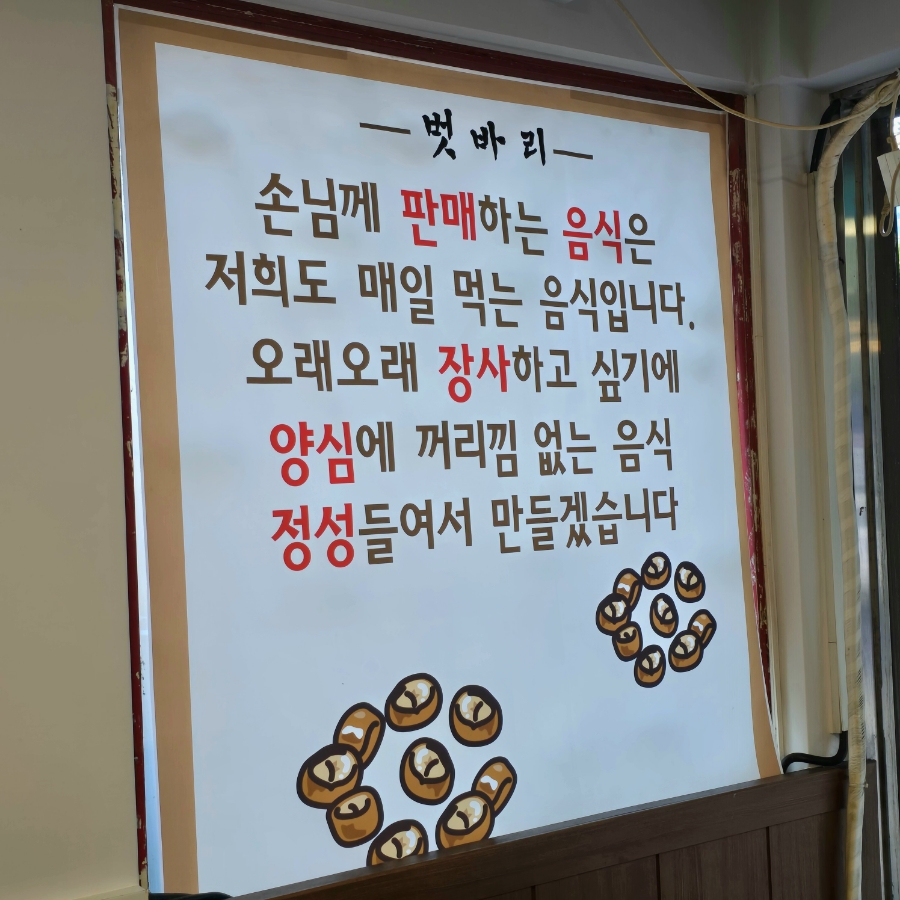 벗바리
손님께 판매하는 음식은
저희도 매일 먹는 음식입니다.
오래오래 장사하고 싶기에
양심에 꺼리낌 없는 음식
정성들여서 만들겠습니다